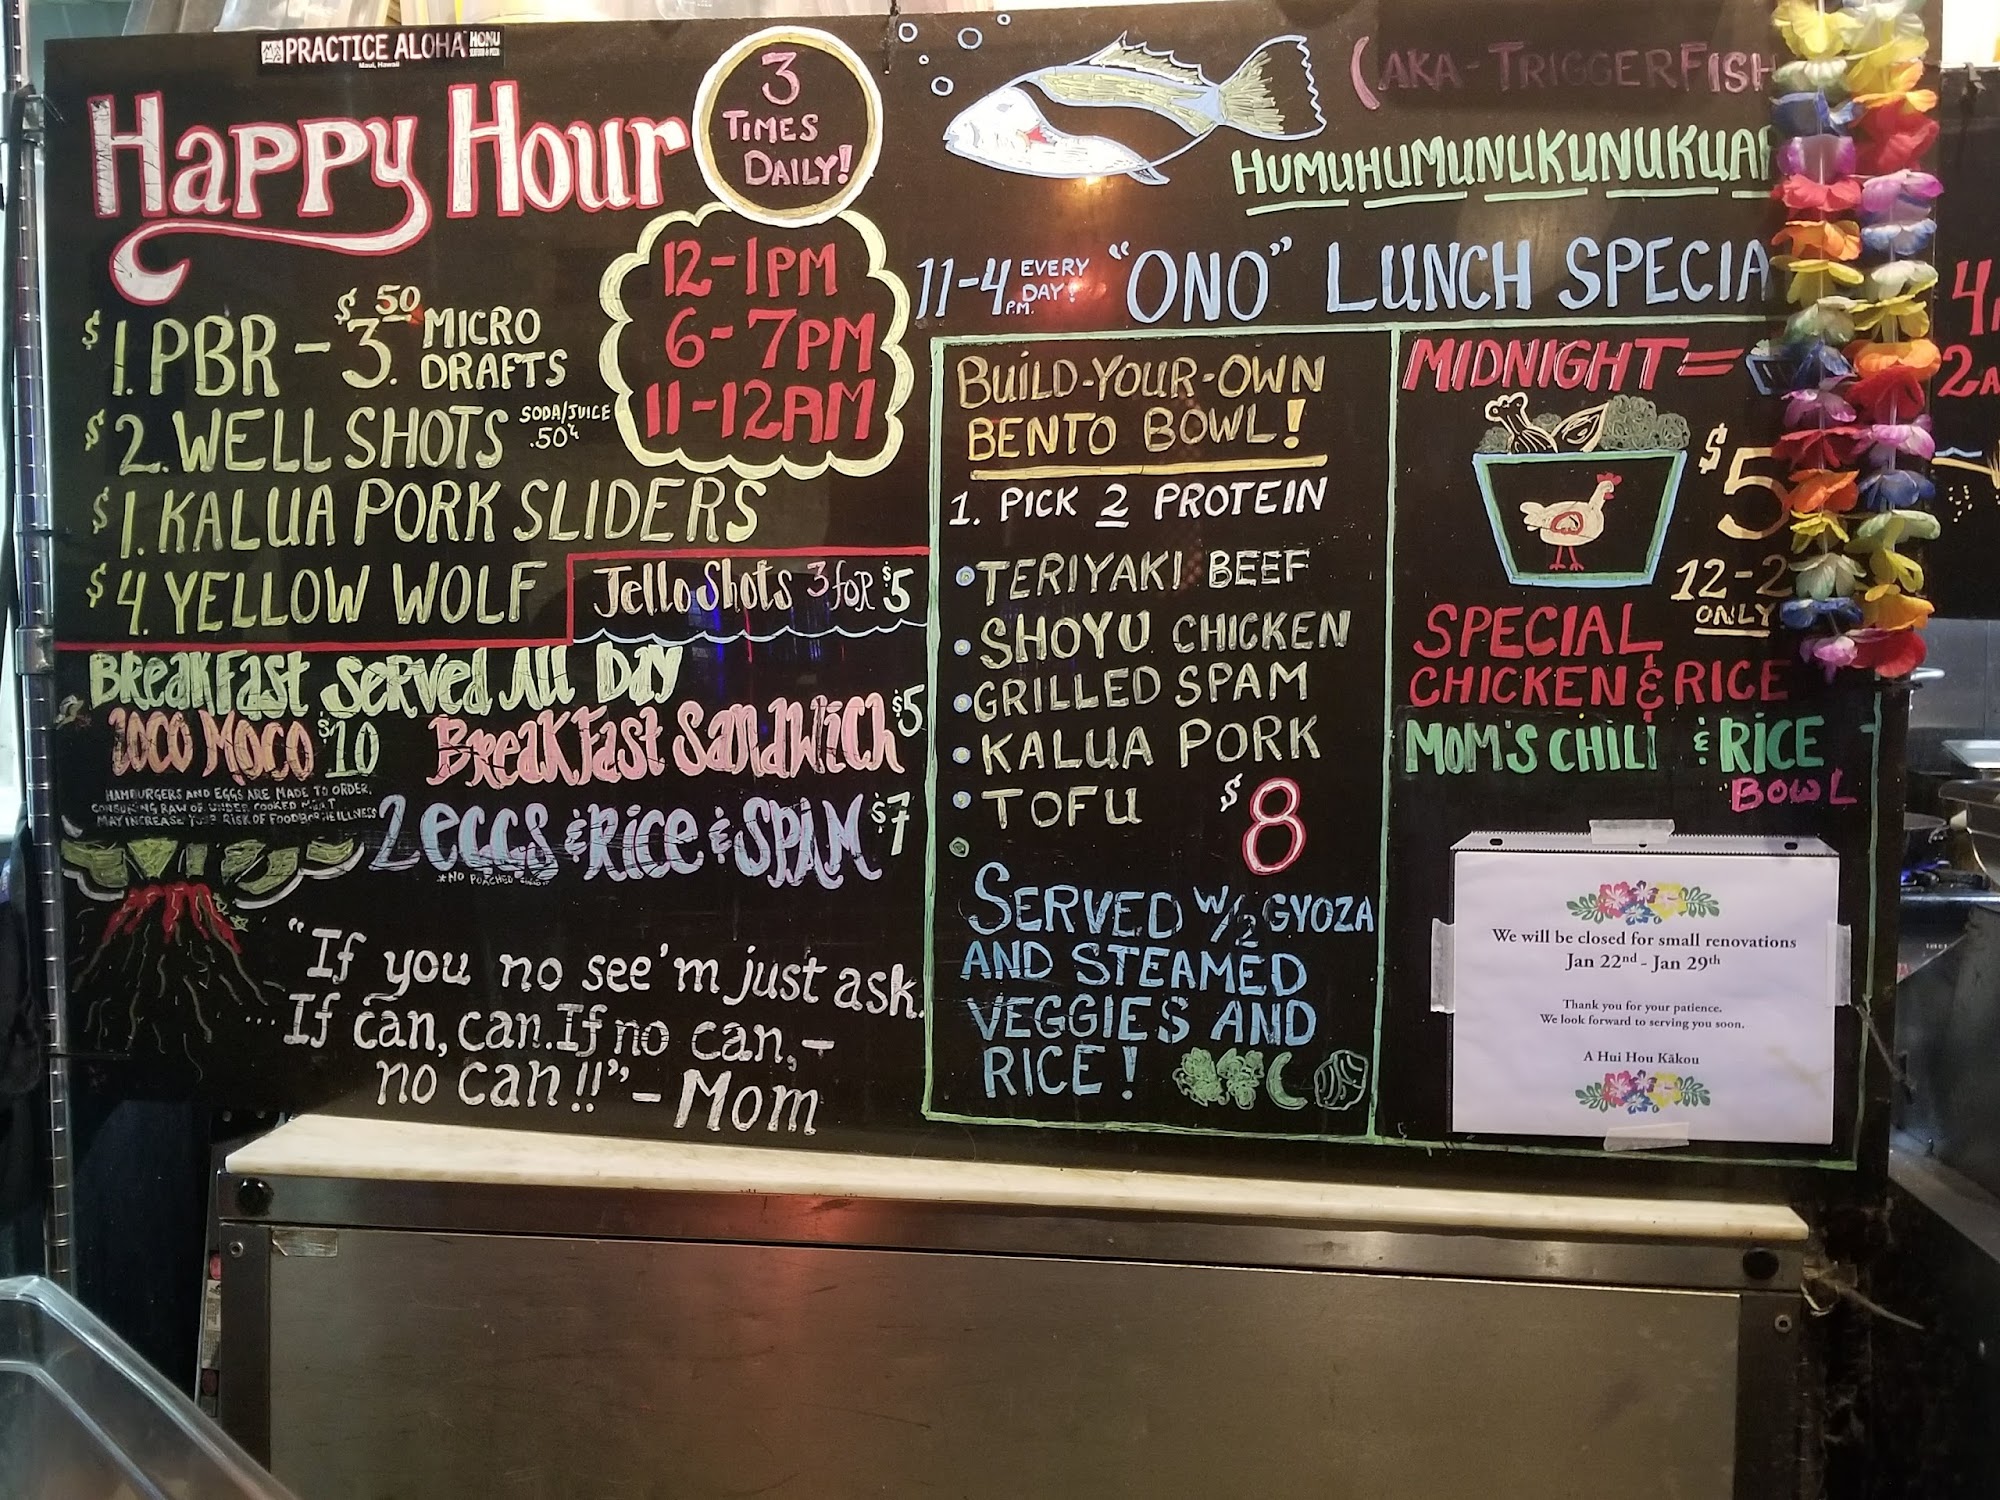 PRACTICE ALOHA HONU
Maui, Hawaii
Happy Hour
3
TIMES
DAILY!
12-1PM
6-7PM
11-12AM
$1. PBR - $3.50 MICRO
DRAFTS
$2. WELL SHOTS SODA/JUICE
.50¢
$1. KALUA PORK SLIDERS
$4. YELLOW WOLF
Jello Shots 3 for $5
BreakFast Served All Day
LOCO MOCO $10
BreakFast Sandwich $5
HAMBURGERS AND EGGS ARE MADE TO ORDER.
CONSUMING RAW OR UNDER COOKED MEAT
MAY INCREASE YOUR RISK OF FOODBORNE ILLNESS
2 eggs & Rice & SPAM $7
*NO POACHED
"If you no see'm just ask.
...If can, can. If no can,-
no can!!" - Mom
(AKA - TRIGGERFISH
HUMUHUMUNUKUNUKUA
11-4 P.M. EVERY
DAY! "ONO" LUNCH SPECIA
BUILD-YOUR-OWN
BENTO BOWL!
1. PICK 2 PROTEIN
TERIYAKI BEEF
SHOYU CHICKEN
GRILLED SPAM
KALUA PORK
TOFU $8
SERVED W/2 GYOZA
AND STEAMED
VEGGIES AND
RICE!
MIDNIGHT =
$5
12-2
ONLY
SPECIAL
CHICKEN & RICE
MOM'S CHILI & RICE
BOWL
We will be closed for small renovations
Jan 22nd - Jan 29th
Thank you for your patience.
We look forward to serving you soon.
A Hui Hou Kākou